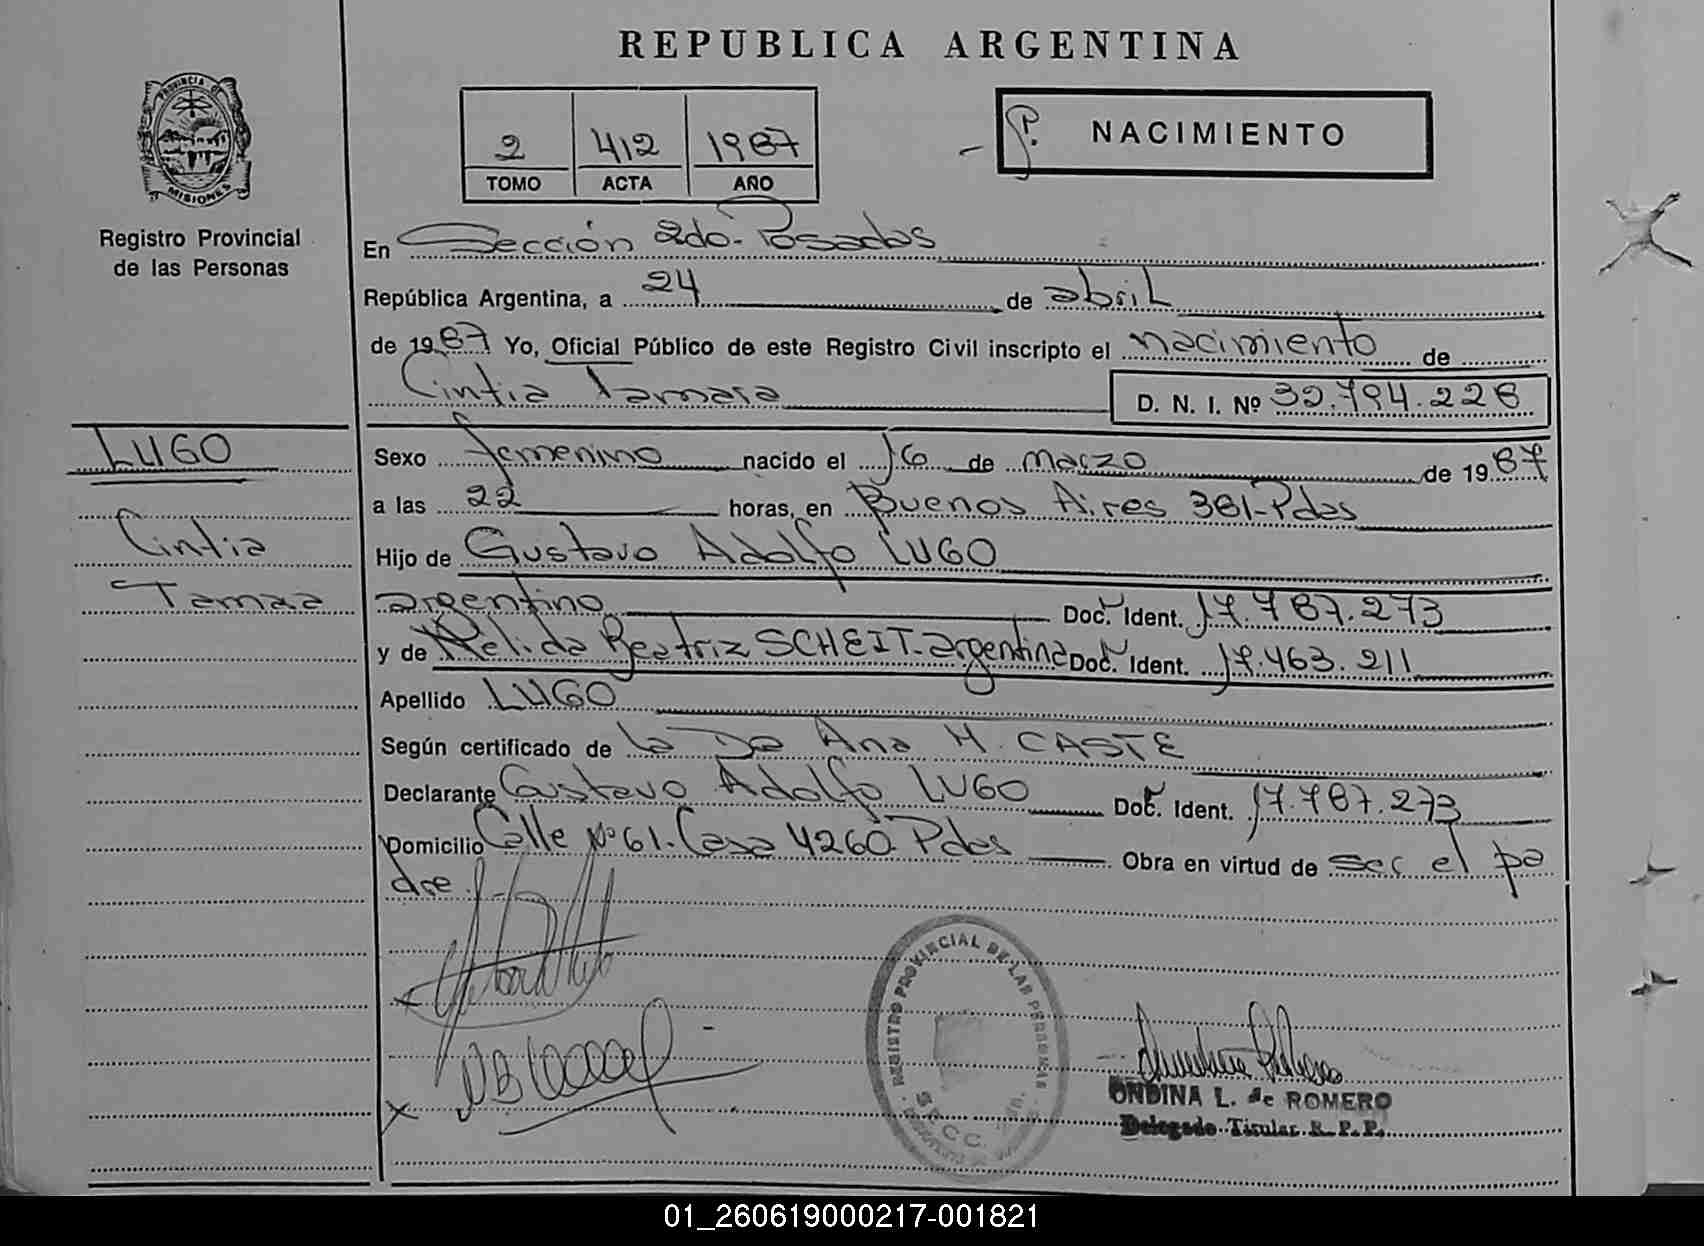 REPUBLICA ARGENTINA
PROVINCIA DE
MISIONES
Registro Provincial
de las Personas
2 412 1987
TOMO ACTA AÑO
P. NACIMIENTO
En Sección 2do. Posadas
República Argentina, a 24 de abril
de 1987 Yo, Oficial Público de este Registro Civil inscripto el nacimiento de
Cintia Tamara
D. N. I. Nº 32.794.226
LUGO
Cintia
Tamara
Sexo femenino nacido el 16 de marzo de 1987
a las 22 horas, en Buenos Aires 381-Pdas
Hijo de Gustavo Adolfo LUGO
argentino Doc. Ident. 17.787.273
y de Nélida Beatriz SCHEIT-argentina Doc. Ident. 17.463.211
Apellido LUGO
Según certificado de la Da Ana M. CASTE
Declarante Gustavo Adolfo LUGO Doc. Ident. 17.787.273
Domicilio Calle Nº 61. Casa 4260 Pdas Obra en virtud de ser el pa
dre.
REGISTRO PROVINCIAL DE LAS PERSONAS
SECC.
ONDINA L. de ROMERO
Delegado Titular R. P. P.
01_260619000217-001821